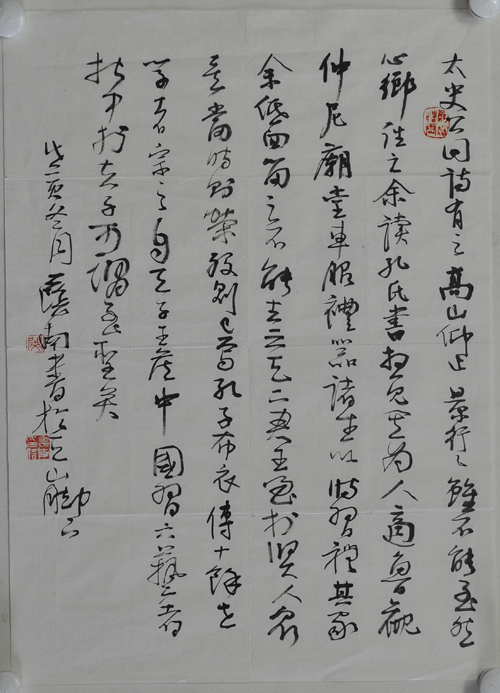 太史公曰詩有之高山仰止景行〻雖不能至然
心鄉往之余讀孔氏書想見其為人適魯觀
仲尼廟堂車服禮器諸生以時習禮其家
余低回留之不能去云天下君王至於賢人眾
矣當時則榮沒則已焉孔子布衣傳十餘世
學者宗之自天子王侯中國習六藝者
折中於夫子可謂至聖矣
南書於山腳下